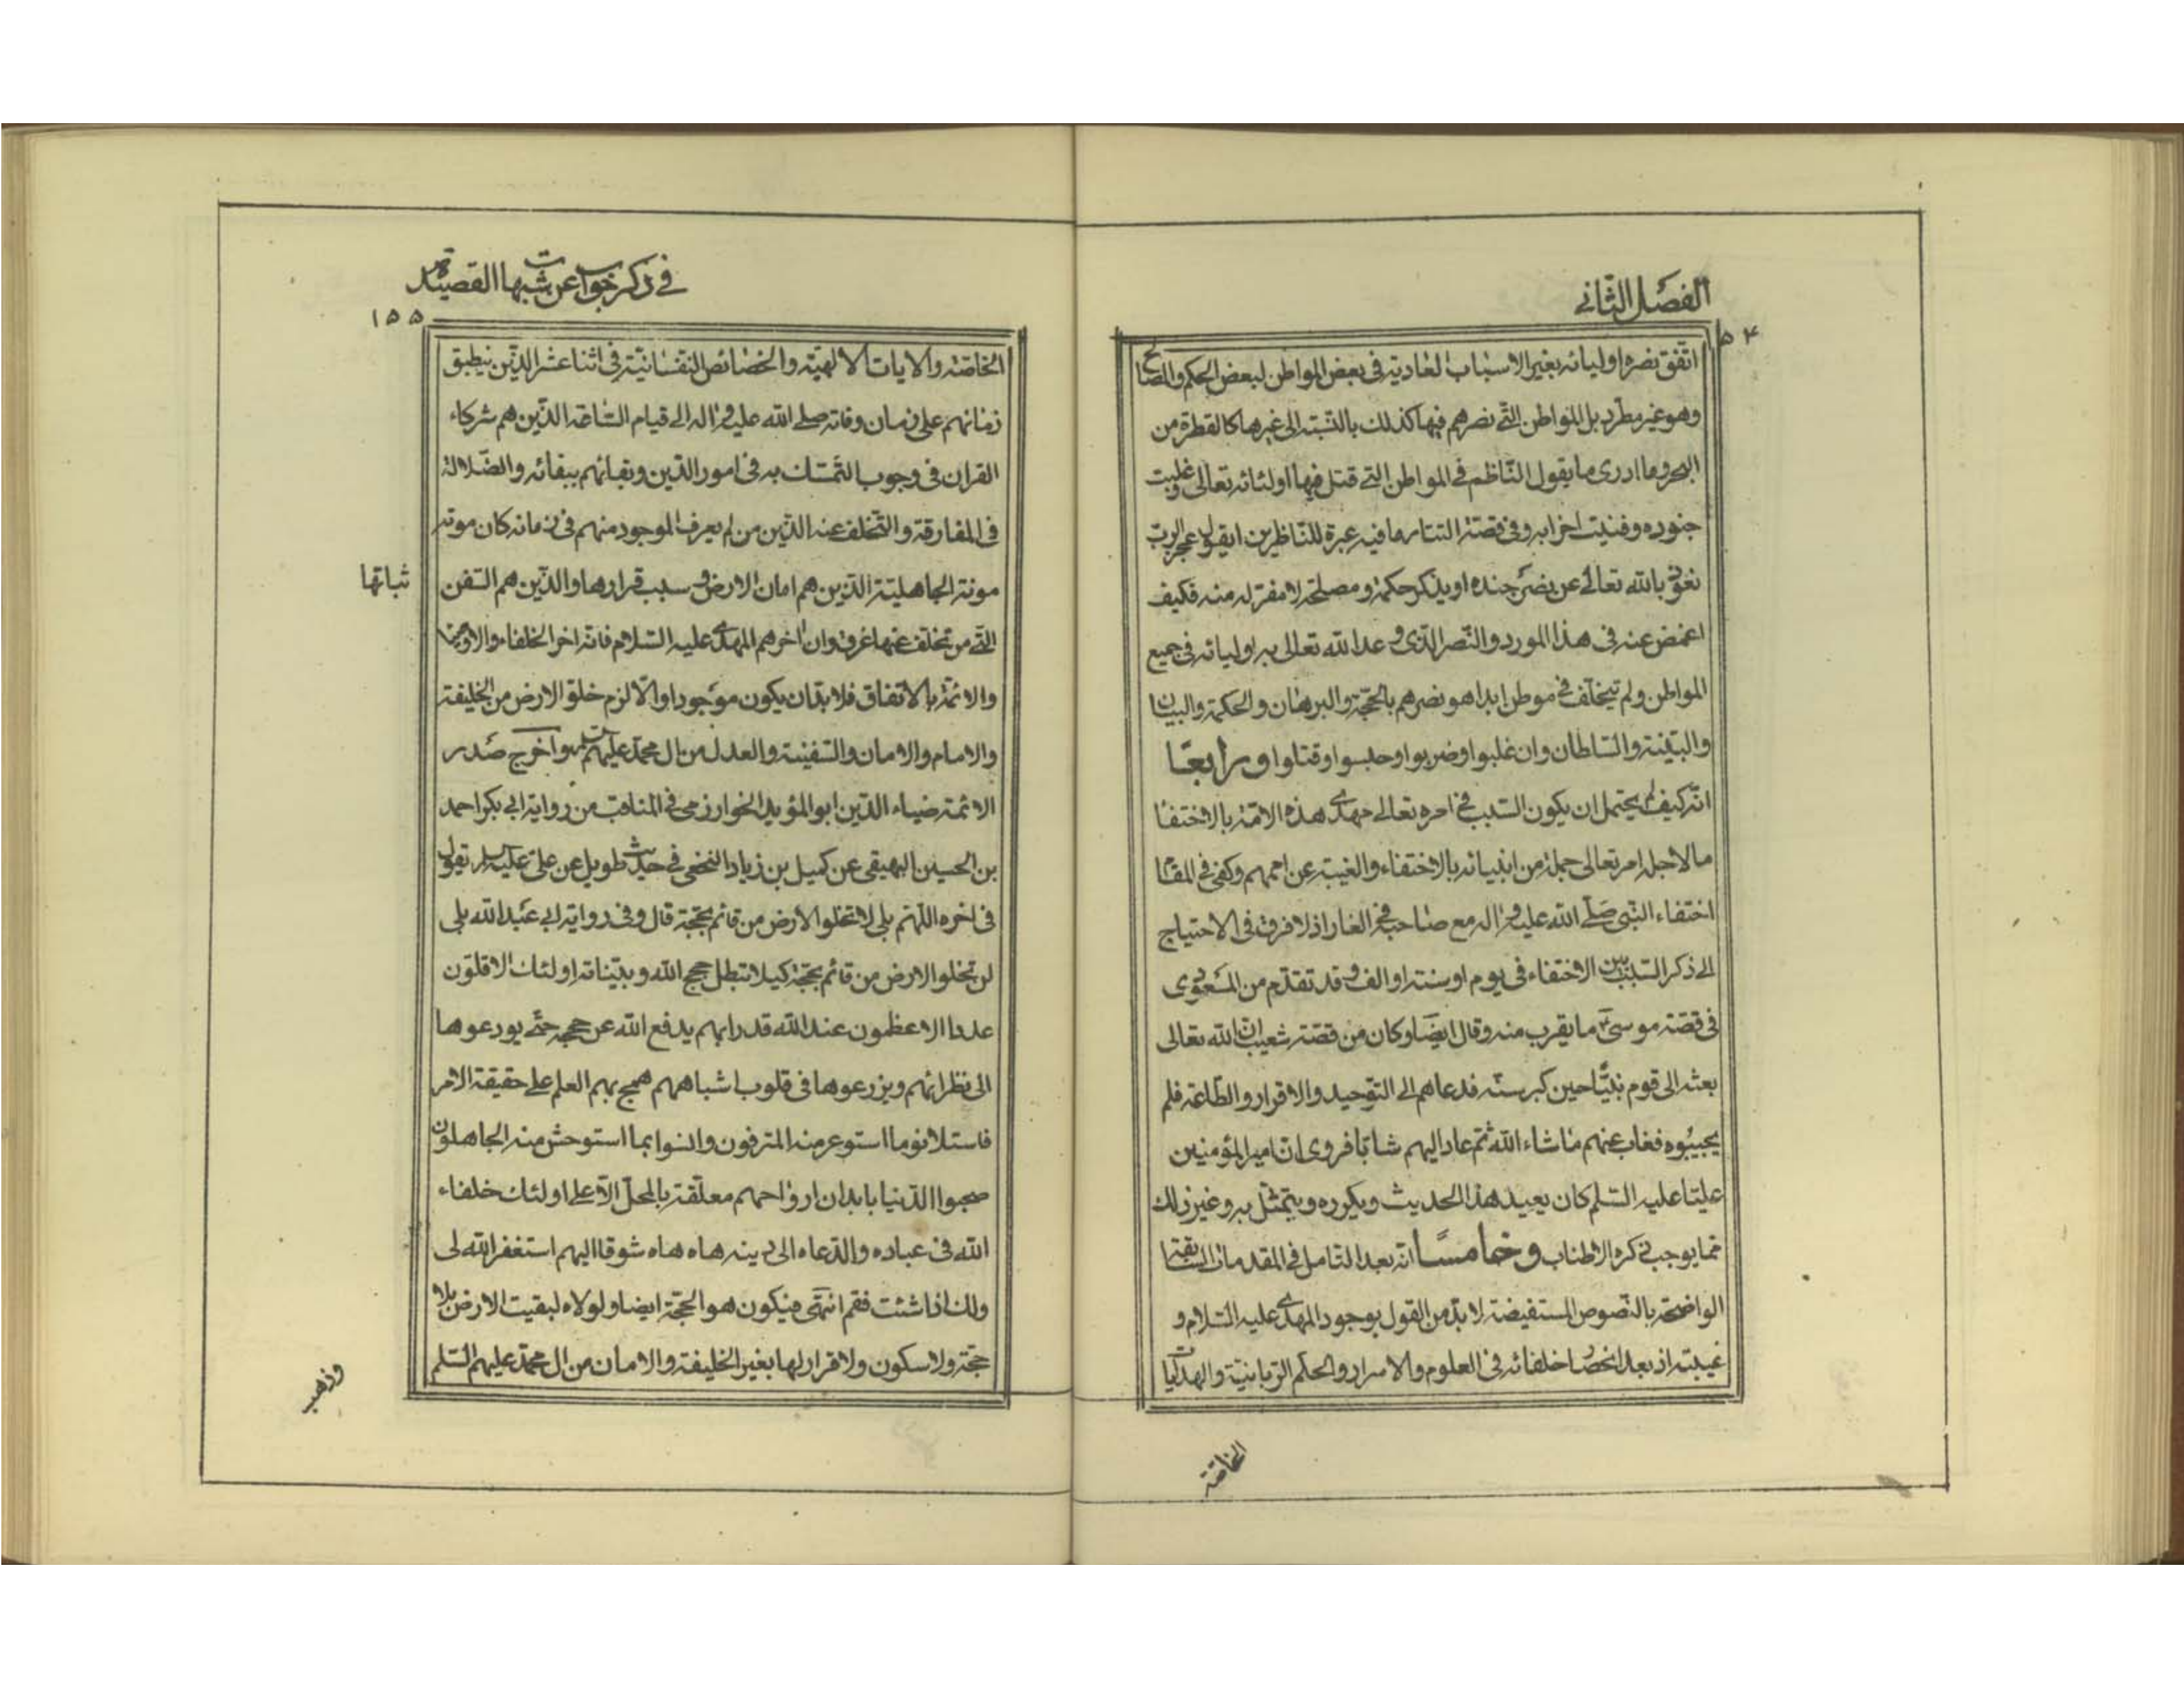 الفصل الثاني
١٥٤
اتفق نصره اوليائه بغير الاسباب العادية في بعض المواطن لبعض الحكم والمصالح
وهو غير مطرد بل المواطن التي نصرهم فيها كذلك بالنسبة الى غيرها كالقطرة من
البحر وما ادرى ما يقول الناظم في المواطن التي قتل فيها اوليائه تعالى وغلبت
جنوده وفنيت احزابه وفي قصة التتار ما فيه عبرة للناظرين ايقول عجز الرب
نعوذ بالله تعالى عن نصر جنده او يذكر حكمة ومصلحة لا مفر له منه فكيف
اغمض عنه في هذا المورد والنصر الذي وعد الله تعالى به اوليائه في جميع
المواطن ولم يتخلف في موطن ابدا هو نصرهم بالحجة والبرهان والحكمة والبيان
والبينة والسلطان وان غلبوا وضربوا وحبسوا وقتلوا ورابعا
انه كيف لم يحتمل ان يكون السبب في امره تعالى مهدى هذه الامة بالاختفا
ما لاجله امر تعالى جملة من انبيائه بالاختفاء والغيبة عن اممهم وكفى في المقام
اختفاء النبى صلى الله عليه واله مع صاحبه في الغار اذ لا فرق في الاحتياج
الى ذكر السبب بين الاختفاء في يوم او سنة او الف وقد تقدم من المسعودى
في قصة موسى ع ما يقرب منه وقال ايضا وكان من قصة شعيب ان الله تعالى
بعثه الى قوم نبيا حين كبر سنه فدعاهم الى التوحيد والاقرار والطاعة فلم
يجيبوه فغاب عنهم ما شاء الله ثم عاد اليهم شابا فروى ان امير المؤمنين
عليا عليه السلم كان يعيد هذا الحديث ويكرره ويتمثل به وغير ذلك
مما يوجب ذكره الاطناب وخامسا انه بعد التامل في المقدمات السابقة
الواضحة بالنصوص المستفيضة لا بد من القول بوجود المهدى عليه السلام و
غيبته اذ بعد انحصار خلفائه في العلوم والاسرار والحكم الربانية والهدايات
الخاصة
في ذكر جواب عن شبهات القصيدة
١٥٥
الخاصة والايات الالهية والخصائص النفسانية في اثنا عشر الذين ينطبق
زمانهم على زمان وفاته صلى الله عليه واله الى قيام الساعة الذين هم شركاء
القران في وجوب التمسك به في امور الدين وبقائهم ببقائه والضلالة
في المفارقة والتخلف عنه الذين من لم يعرف الموجود منهم في زمانه كان موته
موتة الجاهلية الذين هم امان الارض وسبب قرارها والذين هم السفن
ثباتها
التي من تخلف عنها غرق وان اخرهم المهدى عليه السلام فانه اخر الخلفاء والاوصياء
والائمة بالاتفاق فلا بد ان يكون موجودا والا لزم خلو الارض من الخليفة
والامام والامان والسفينة والعدل من ال محمد عليهم السلم واخرج صدر
الائمة ضياء الدين ابو المؤيد الخوارزمى في المناقب من رواية ابى بكر احمد
بن الحسين البهيقى عن كميل بن زياد النخعى في حديث طويل عن على عليه السلم يقول
في اخره اللهم بلى لا تخلو الارض من قائم بحجة قال وفي رواية ابى عبد الله بلى
لن تخلو الارض من قائم بحجة كيلا تبطل حجج الله وبيناته اولئك الاقلون
عددا الاعظمون عند الله قدرا بهم يدفع الله عن حججه حتى يودعوها
الى نظرائهم ويزرعوها في قلوب اشباههم هجم بهم العلم على حقيقة الامر
فاستلانوا ما استوعر منه المترفون وانسوا بما استوحش منه الجاهلون
صحبوا الدنيا بابدان ارواحهم معلقة بالمحل الاعلى اولئك خلفاء
الله في عباده والدعاه الى دينه هاه هاه شوقا اليهم استغفر الله لى
ولك اذا شئت فقم انتهى فيكون هو الحجة ايضا ولولاه لبقيت الارض بلا
حجة ولا سكون ولا قرار لها بغير الخليفة والامان من ال محمد عليهم السلم
وذهب